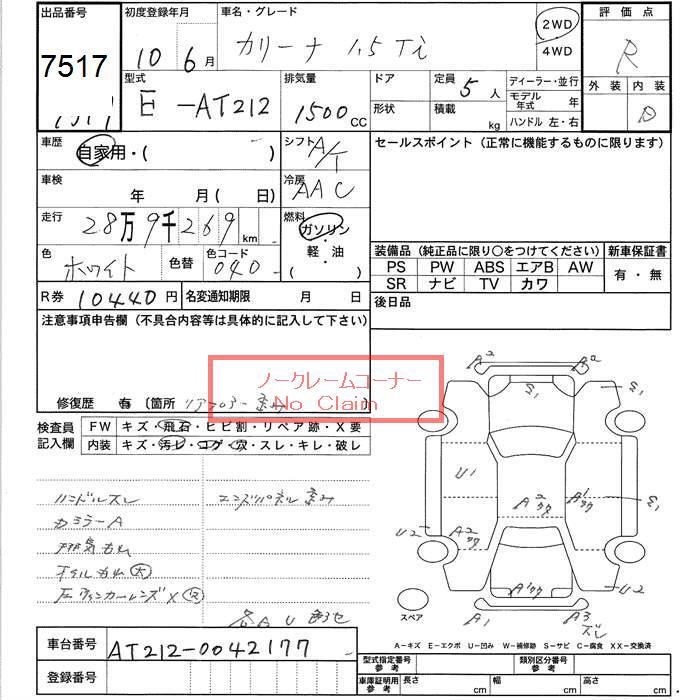 出品番号
7517
初度登録年月
10 6月
車名・グレード
カリーナ 1.5 Ti
2WD
4WD
評価点
R
外装 内装
D
型式
E -AT212
排気量
1500 CC
ドア
形状
定員 5 人
積載 kg
ディーラー・並行
モデル年式 年
ハンドル 左・右
車歴
自家用・( )
シフト
A/T
セールスポイント(正常に機能するものに限ります)
車検
年 月(日)
冷房
AAC
走行
28万9千269 km
燃料
ガソリン
軽・油
( )
色
ホワイト
色替
色コード
040
装備品(純正品に限り○をつけてください)
新車保証書
PS PW ABS エアB AW
SR ナビ TV カワ
有・無
R券 10440円
名変通知期限 月 日
後日品
注意事項申告欄(不具合内容等は具体的に記入して下さい)
ノークレームコーナー
No Claim
修復歴 有 〔箇所 リアフロアー歪み 〕
検査員
記入欄
FW キズ・飛石・ヒビ割・リペア跡・X要
内装 キズ・汚レ・コゲ・穴・スレ・キレ・破レ
ハンドルスレ
エンドパネル歪み
カミラーA
排気カム
オイルカム(大)
左ウィンカーレンズX
各AU
A2 A2
S1 S1
U1 A2 A1 S1
U2 A2 U2
A1 A3
スレ
スペア
A-キズ E-エクボ U-凹み W-補修跡 S-サビ C-腐食 XX-交換済
車台番号 AT212-0042177
登録番号
型式指定番号
参考
類別区分番号
参考
車庫証明用
参考
長さ cm 幅 cm 高さ cm